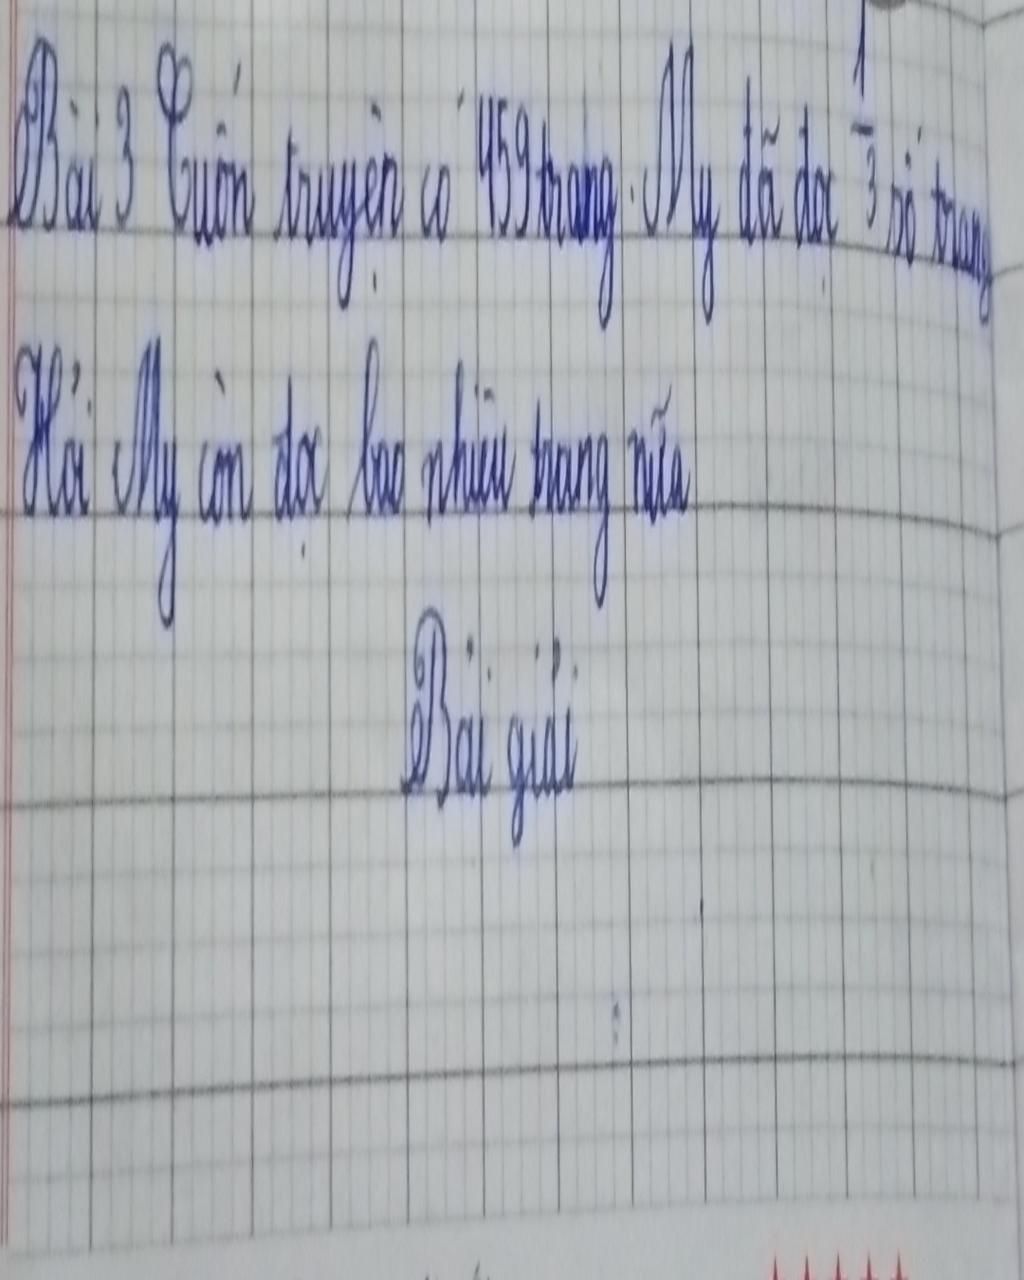 Bài 3 Cuốn truyện có 459 trang. My đã đọc 1/3 số trang
Hỏi My còn đọc bao nhiêu trang nữa
Bài giải